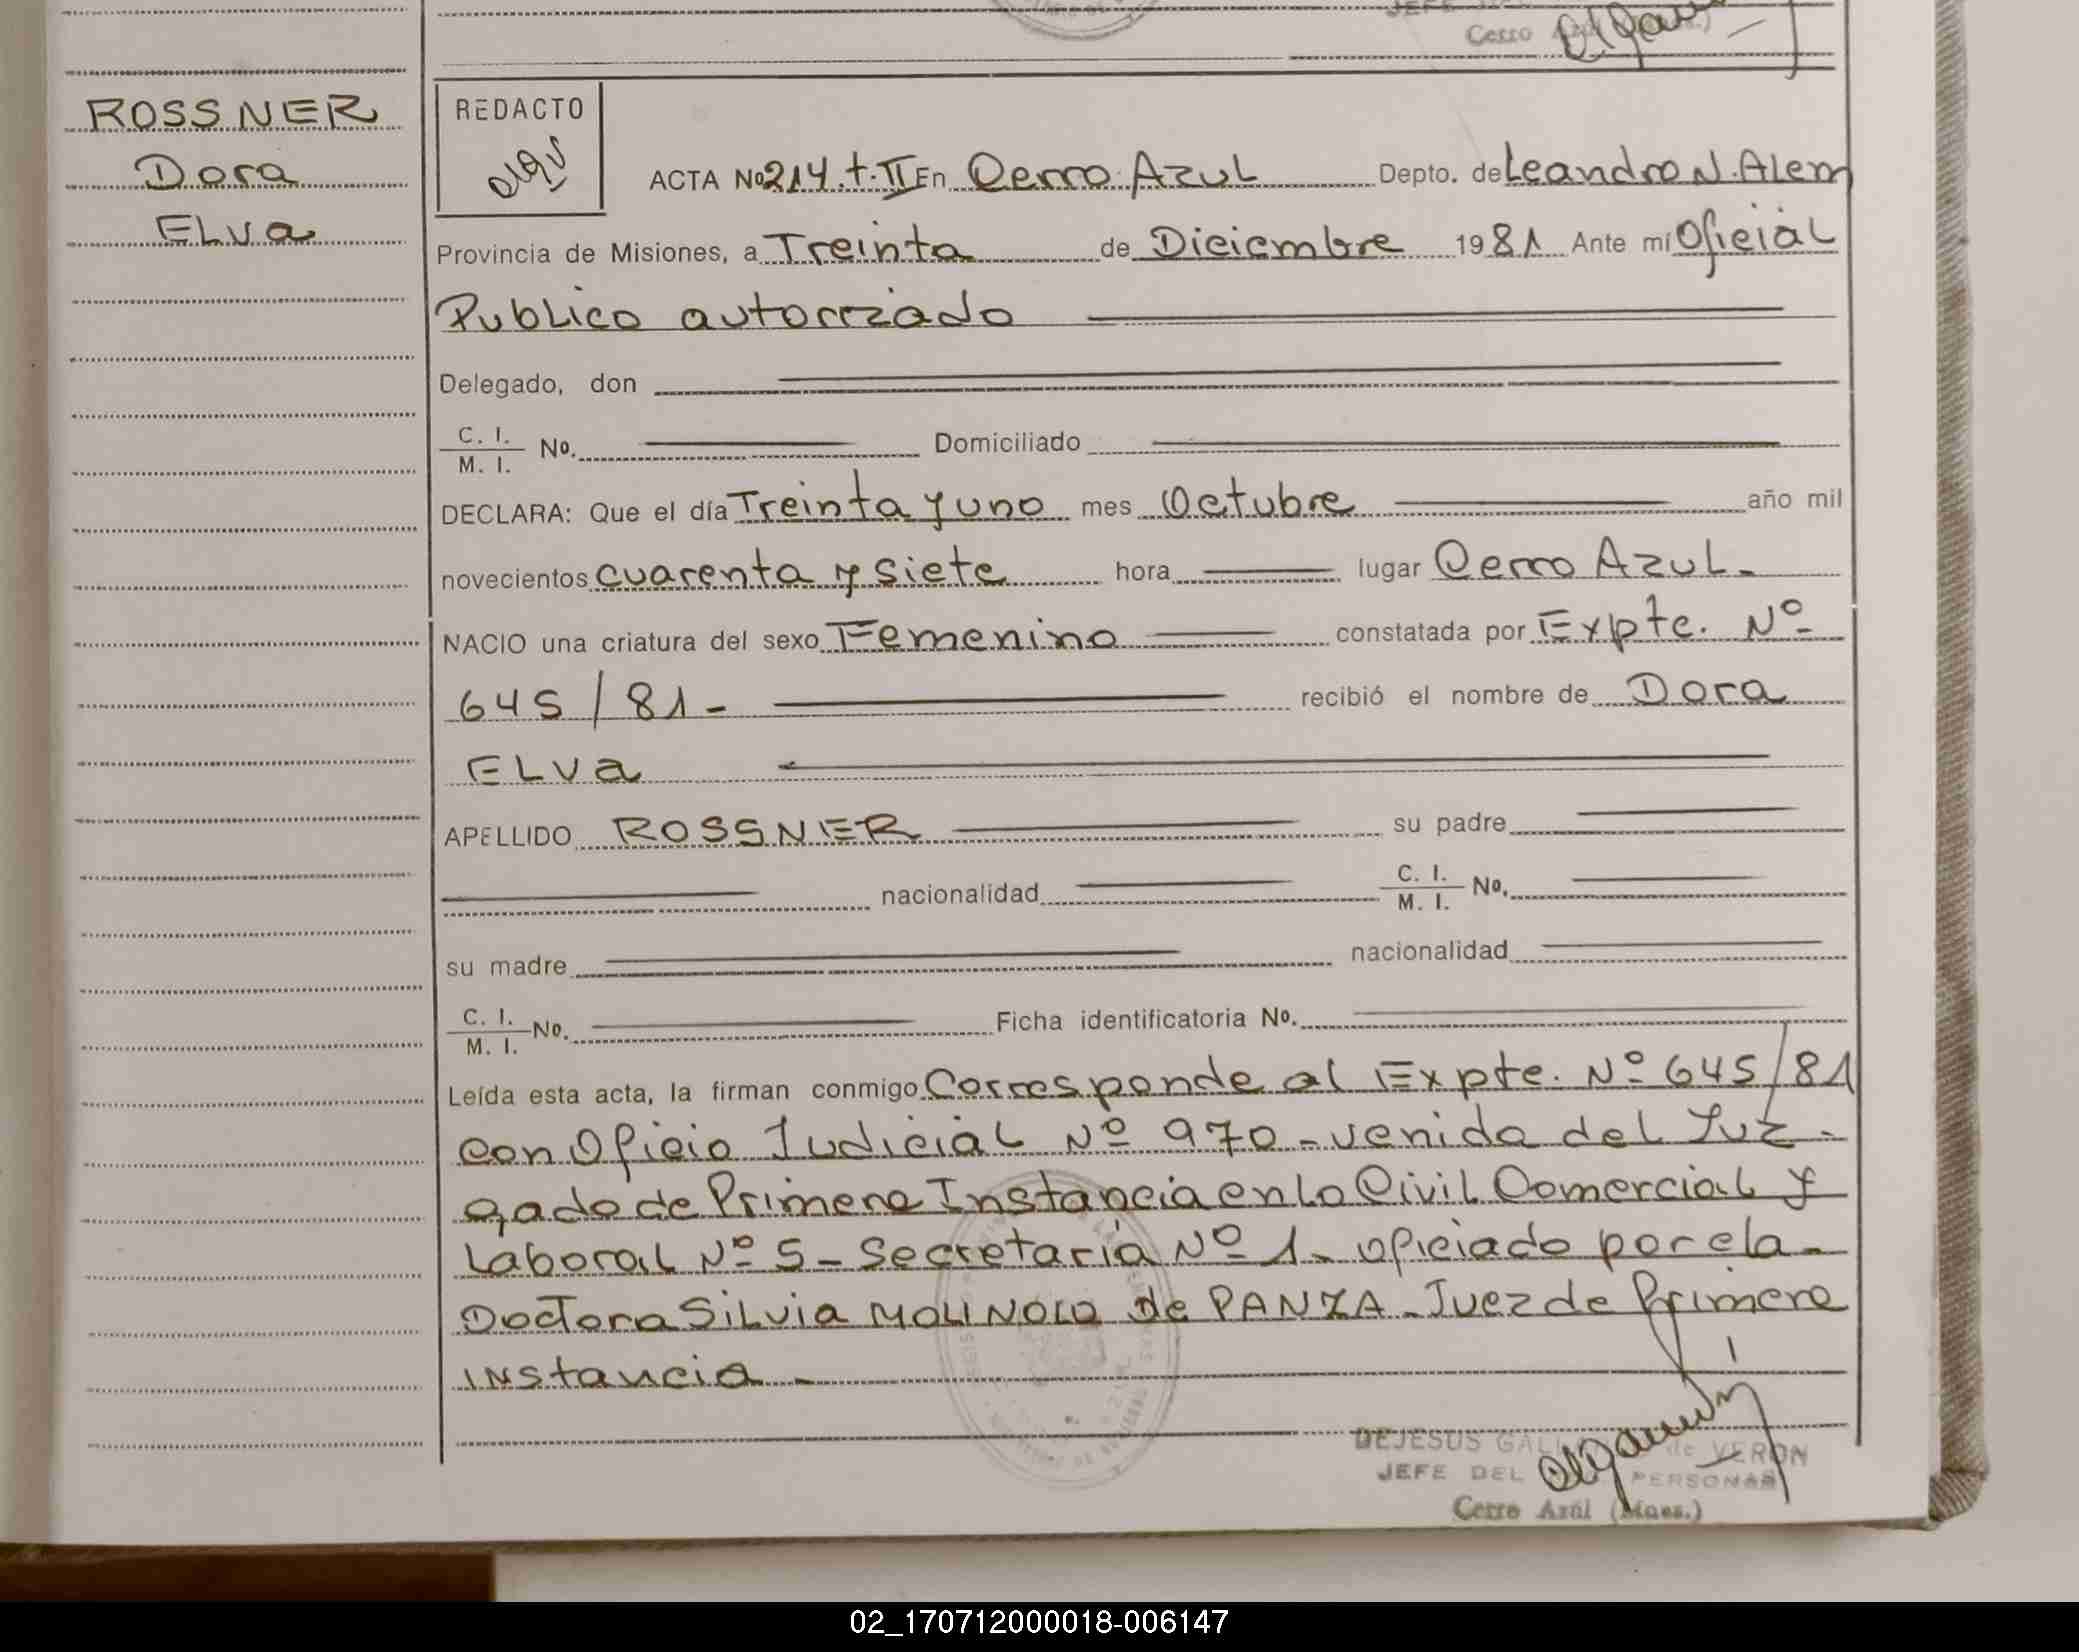 Cerro
ROSSNER
Dora
ELva
REDACTO
ACTA Nº 214. t. II En Cerro Azul Depto. de Leandro N. Alem
Provincia de Misiones, a Treinta de Diciembre 1981 Ante mí Oficial
Publico autorizado
Delegado, don
C. I.
M. I. Nº. Domiciliado
DECLARA: Que el día Treinta y uno mes Octubre año mil
novecientos cuarenta y siete hora lugar Cerro Azul.
NACIO una criatura del sexo Femenino constatada por Expte. Nº
645/81- recibió el nombre de Dora
ELva
APELLIDO ROSSNER su padre
nacionalidad C. I.
M. I. Nº.
su madre nacionalidad
C. I.
M. I. Nº. Ficha identificatoria Nº.
Leída esta acta, la firman conmigo Corresponde al Expte. Nº 645/81
con Oficio Judicial Nº 970 - venida del Juz-
gado de Primera Instancia en lo Civil Comercial y
Laboral Nº 5 - Secretaría Nº 1 - oficiado por la -
Doctora Silvia de PANZA - Juez de Primera
Instancia -
DEJESUS de VERON
JEFE DEL PERSONAS
Cerro Azúl (Mnes.)
02_170712000018-006147